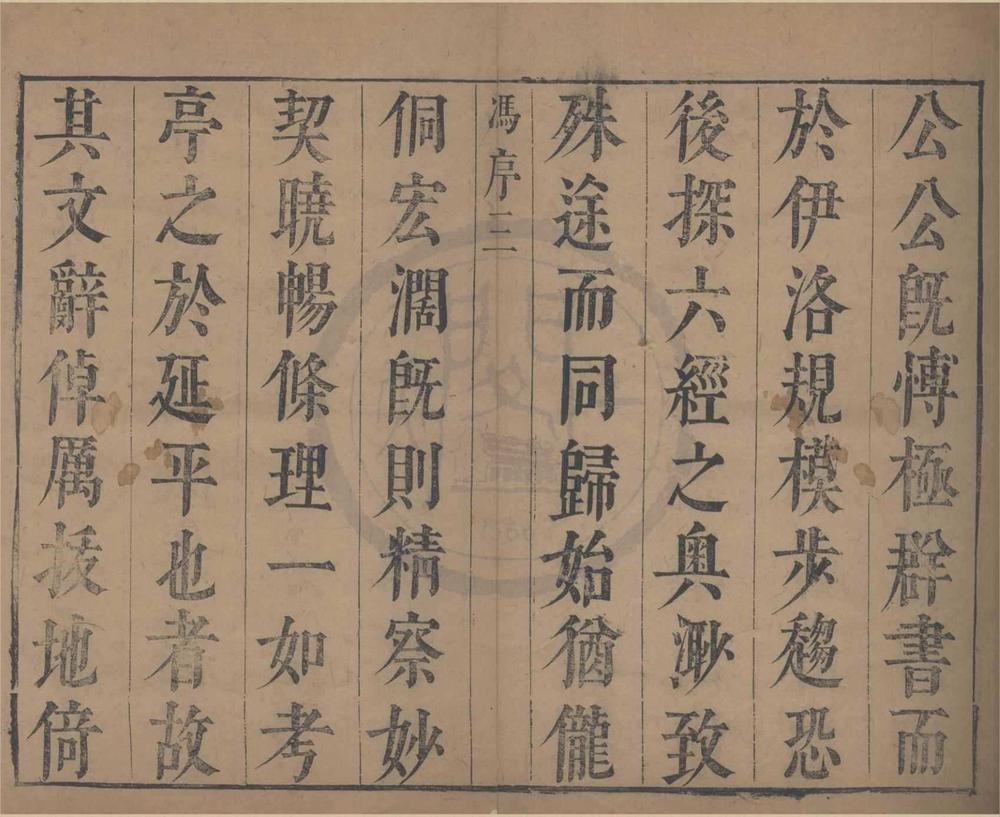 公公旣愽極群書而
於伊洛規模步趨恐
後探六經之奥渺致
殊途而同歸始猶儱
馮序三
侗宏濶旣則精察妙
契曉暢條理一如考
亭之於延平也者故
其文辭倬厲拔地倚